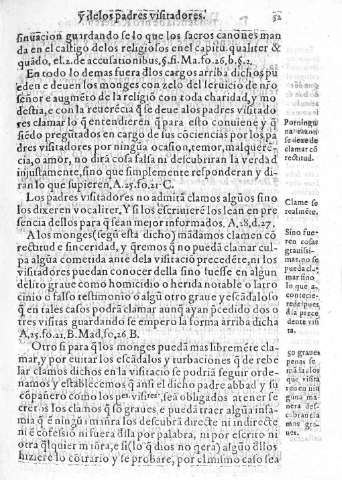 y delos padres visitadores. 52
sinuacion guardando se lo que los sacros canones man
da en el castigo delos religiosos en el capitu. qualiter &
quādo, el. 2. de accusationibus, §. fi. Ma. fo. 26, b. §. 2.
En todo lo demas fuera dlos cargos arriba dichos pu
eden e deuen los monges con zelo del seruicio de nrō
señor e augmēto de la religiō con toda charidad, y mo
destia, e con la reuerēcia q̄ se deue alos padres visitado
res clamar lo q̄ entendierēn q̄para esto conuiene y q̄
siēdo pregūtados en cargo de sus cōciencias por los pa
dres visitadores por ningūa ocasion, temor, malquerē-
cia, o amor, no dirā cosa falsa ni descubriran la verdad
injustamente, sino que simplemente responderan y di-
rān lo que supieren, A. 25. fo. 21. C.
Los padres visitadores no admitā clamos algūos sino
los dixeren vocaliter, Y si los escriuierē los lean en pre
sencia dellos para q̄ sean mejor informados. A, 28, d. 27.
A los monges (segū esta dicho) mādamos clamen cō
rectitud e sinceridad, y q̄remos q̄ no puedā clamar cul
pa algūa cometida ante dela visitaciō precedēte, ni los
visitadores puedan conocer della sino fuesse en algun
delito graue como homicidio o herida notable o latro
cinio e falso testimonio o algū otro graue y escādaloso
q̄ en tales casos podrā clamar aunq̄ ayan p̄cedido dos o
tres visitas guardando se empero la forma arriba dicha
A, 25. fo. 21, B. Mad, fo, 26 B.
Otro si para q̄ los monges puedā mas libremēte cla-
mar, y por euitar los escādalos y turbaciones q̄ de rebe
lar clamos dichos en la visitaciō se podriā seguir orde-
namos y establecemos q̄ ansi el dicho padre abbad y su
cōpañero como los pes. visitres, seā obligados a tener se
cretos los clamos q̄ sō graues e pueda traer algūa infa-
mia q̄ ē ningūa mīnra los descubrā directe ni indirecte
ni ē cōfessiō ni fuera dlla por palabra, ni por escrito ni
otra q̄lquier mīnra, e si (lo q̄ dios no q̄era) algūo dllos
hiziere lo cōtrario y se prouare, por el mismo caso sea
Por ningu
na via no
se dexe de
clamar cō
rectitud.
Clame se
realmēte.
Sino fue-
ren cosas
grauissi-
mas, no se
pueda cla-
mar sino
lo que a-
conteciere
despues
dla prece
dente visi
ta.
So graues
penas se
mā los
que visitā
ren en nin
guna ma-
nera des-
cubrā cla
mos gra-
ues.